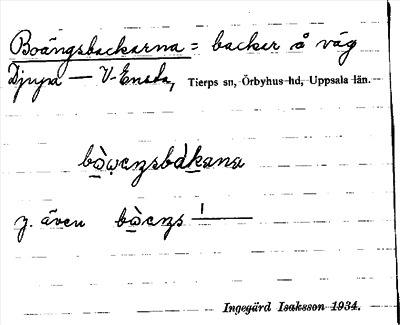 Boängsbackarna = backar å väg
Djupa — V. Ensta, Tierps sn, Örbyhus hd, Uppsala län.
bò̤wεŋsbàkana
z. även bò̤εŋs
Ingegärd Isaksson 1934.